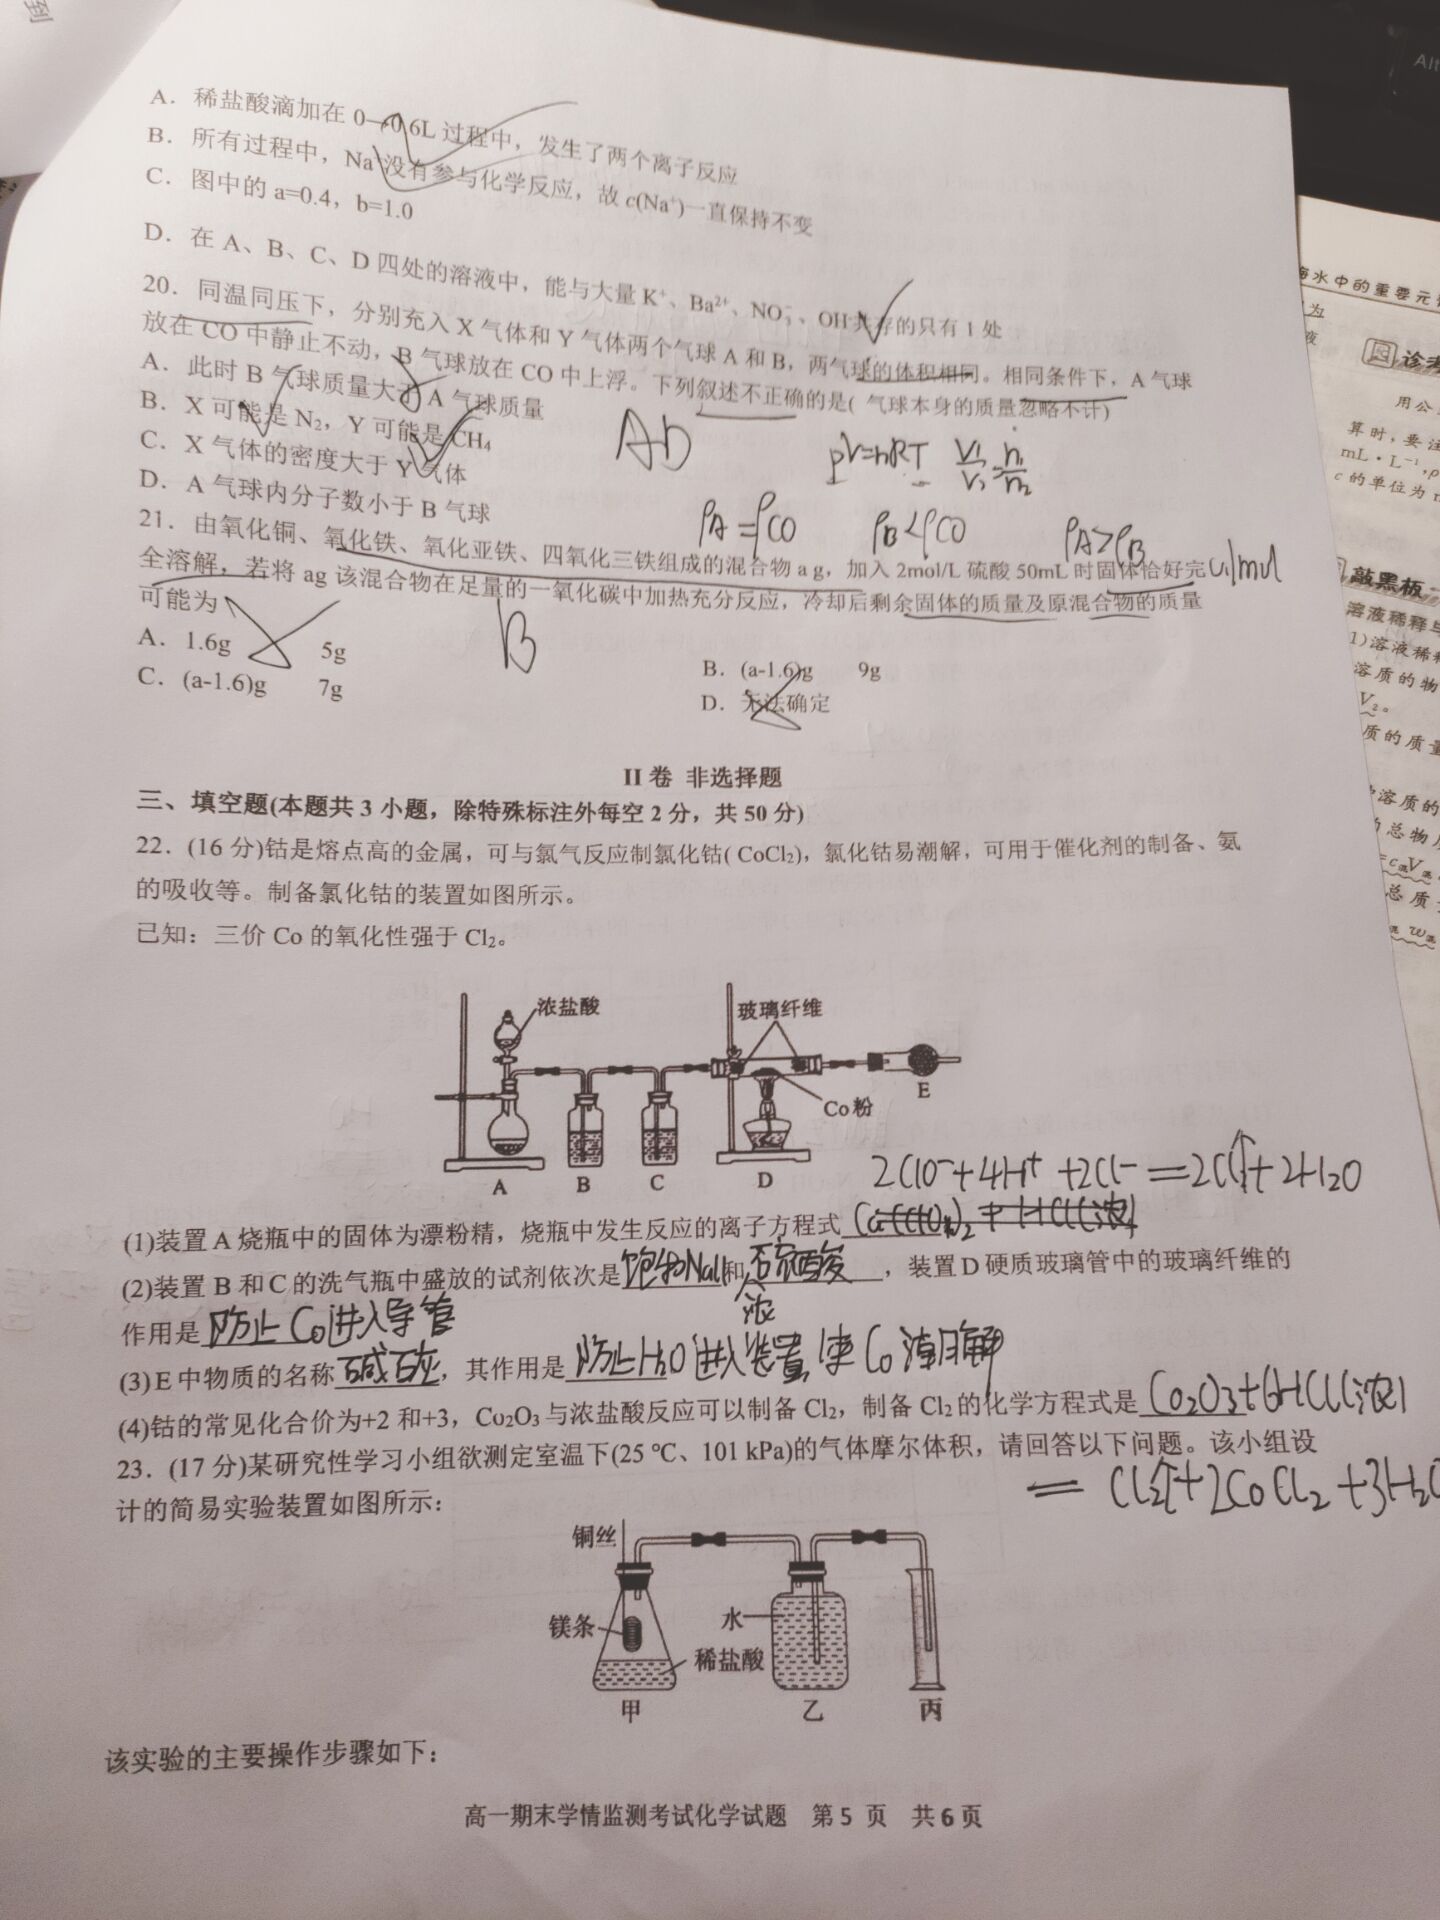 到
Alt
A．稀盐酸滴加在 0—0.6L 过程中，发生了两个离子反应
B．所有过程中，Na⁺没有参与化学反应，故 c(Na⁺)一直保持不变
C．图中的 a=0.4，b=1.0
D．在 A、B、C、D 四处的溶液中，能与大量 K⁺、Ba²⁺、NO₃⁻、OH⁻共存的只有 1 处
20．同温同压下，分别充入 X 气体和 Y 气体两个气球 A 和 B，两气球的体积相同。相同条件下，A 气球
放在 CO 中静止不动，B 气球放在 CO 中上浮。下列叙述不正确的是( 气球本身的质量忽略不计)
A．此时 B 气球质量大于 A 气球质量
B．X 可能是 N₂，Y 可能是 CH₄
C．X 气体的密度大于 Y 气体
D．A 气球内分子数小于 B 气球
AD
pV=nRT V₁/V₂=n₁/n₂
ρA=ρCO ρB<ρCO ρA>ρB
21．由氧化铜、氧化铁、氧化亚铁、四氧化三铁组成的混合物 a g，加入 2mol/L 硫酸 50mL 时固体恰好完
0.1mol
全溶解，若将 ag 该混合物在足量的一氧化碳中加热充分反应，冷却后剩余固体的质量及原混合物的质量
可能为
A．1.6g 5g
B．(a-1.6)g 9g
C．(a-1.6)g 7g
D．无法确定
B
II 卷 非选择题
三、填空题(本题共 3 小题，除特殊标注外每空 2 分，共 50 分)
22．(16 分)钴是熔点高的金属，可与氯气反应制氯化钴( CoCl₂)，氯化钴易潮解，可用于催化剂的制备、氨
的吸收等。制备氯化钴的装置如图所示。
已知：三价 Co 的氧化性强于 Cl₂。
浓盐酸
玻璃纤维
Co 粉
A B C D E
2ClO⁻+4H⁺+2Cl⁻=2Cl₂↑+2H₂O
(1)装置 A 烧瓶中的固体为漂粉精，烧瓶中发生反应的离子方程式 Ca(ClO)₂+HCl(浓)
(2)装置 B 和 C 的洗气瓶中盛放的试剂依次是饱和NaCl和硫酸，装置 D 硬质玻璃管中的玻璃纤维的
浓
作用是 防止Co进入导管
(3)E 中物质的名称 碱石灰，其作用是 防止H₂O进入装置，使Co潮解
(4)钴的常见化合价为+2 和+3，Co₂O₃与浓盐酸反应可以制备 Cl₂，制备 Cl₂的化学方程式是 Co₂O₃+6HCl(浓)
=Cl₂↑+2CoCl₂+3H₂O
23．(17 分)某研究性学习小组欲测定室温下(25 ℃、101 kPa)的气体摩尔体积，请回答以下问题。该小组设
计的简易实验装置如图所示：
铜丝
镁条
水
稀盐酸
甲 乙 丙
该实验的主要操作步骤如下：
高一期末学情监测考试化学试题 第 5 页 共 6 页
海水中的重要元
为
液
诊考
用公
算时，要注
mL·L⁻¹，ρ
c 的单位为
敲黑板
溶液稀释与
1)溶液稀释
溶质的物
V₂。
质的质量
溶质的
总物质
总质